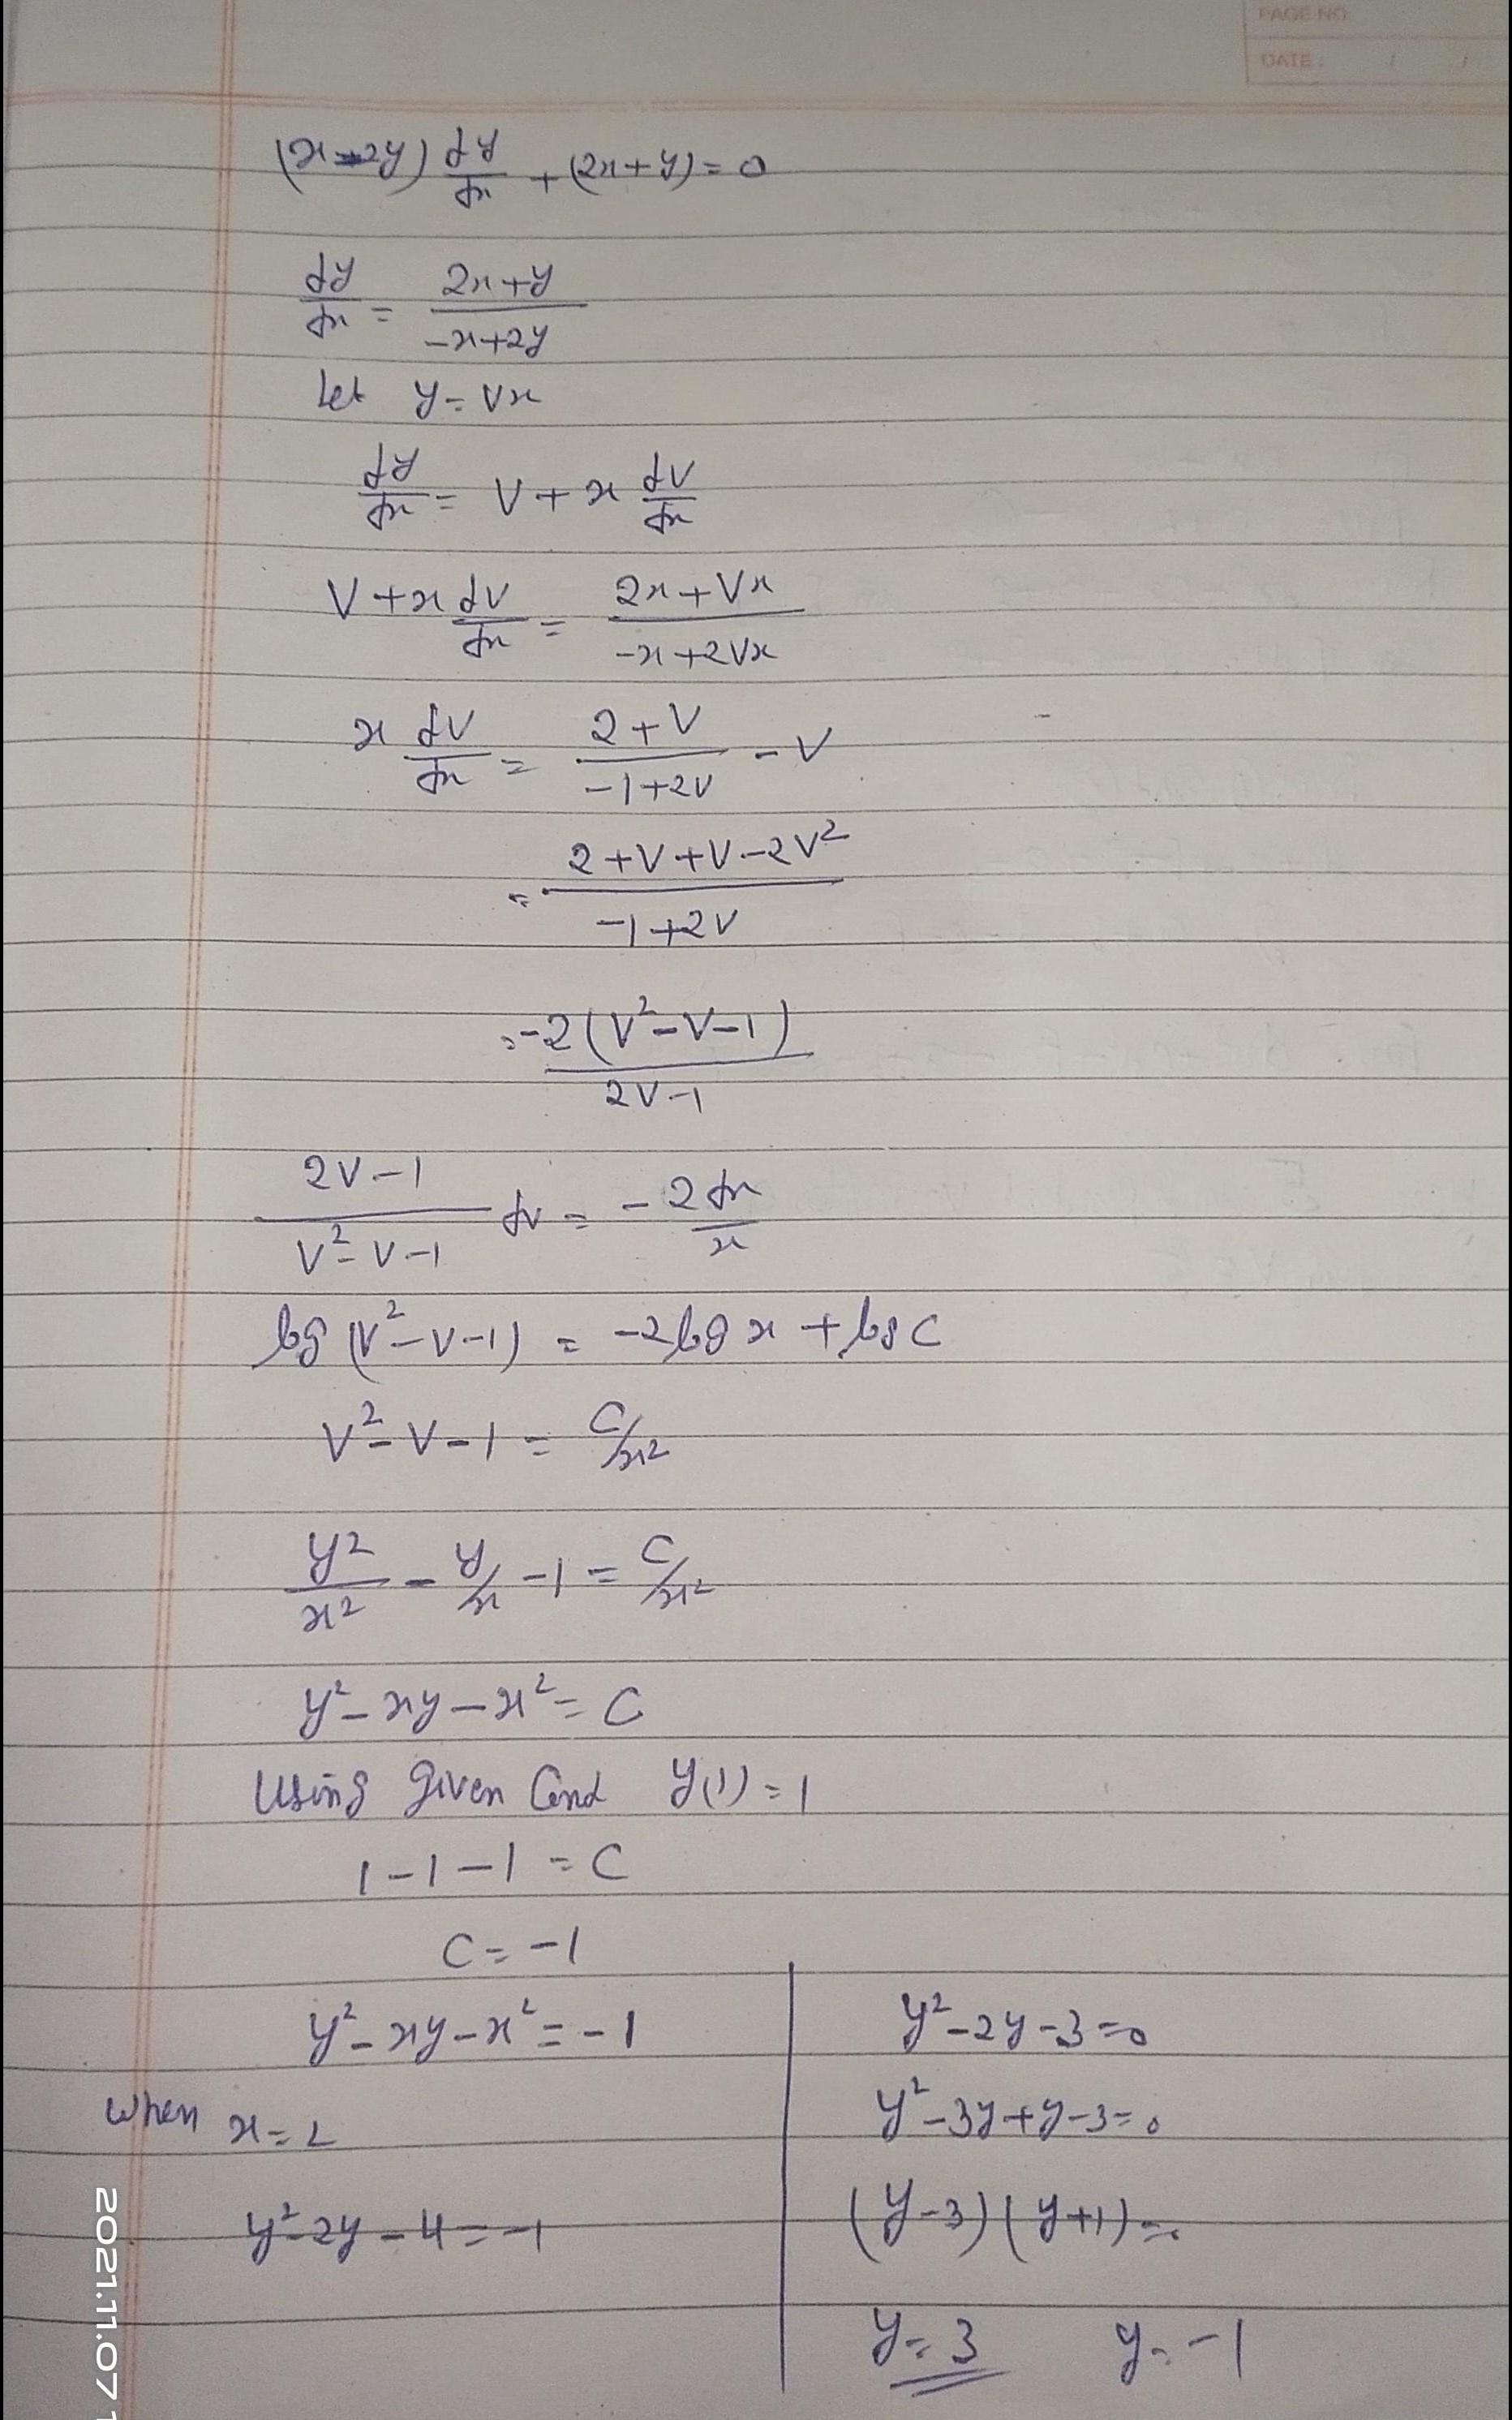 PAGE NO
DATE: / /
(x-2y) dy/dx + (2x+y) = 0
dy/dx = (2x+y)/(-x+2y)
Let y = Vx
dy/dx = V + x dV/dx
V + x dV/dx = (2x+Vx)/(-x+2Vx)
x dV/dx = (2+V)/(-1+2V) - V
= (2+V+V-2V²)/(-1+2V)
= -2(V²-V-1)/(2V-1)
(2V-1)/(V²-V-1) dv = -2 dx/x
log (V²-V-1) = -2 log x + log C
V²-V-1 = C/x²
y²/x² - y/x - 1 = C/x²
y² - xy - x² = C
Using given Cond y(1) = 1
1-1-1 = C
C = -1
y² - xy - x² = -1
when x = 2
y² - 2y - 4 = -1
y² - 2y - 3 = 0
y² - 3y + y - 3 = 0
(y-3)(y+1) = 0
y = 3 y = -1
2021.11.07 1